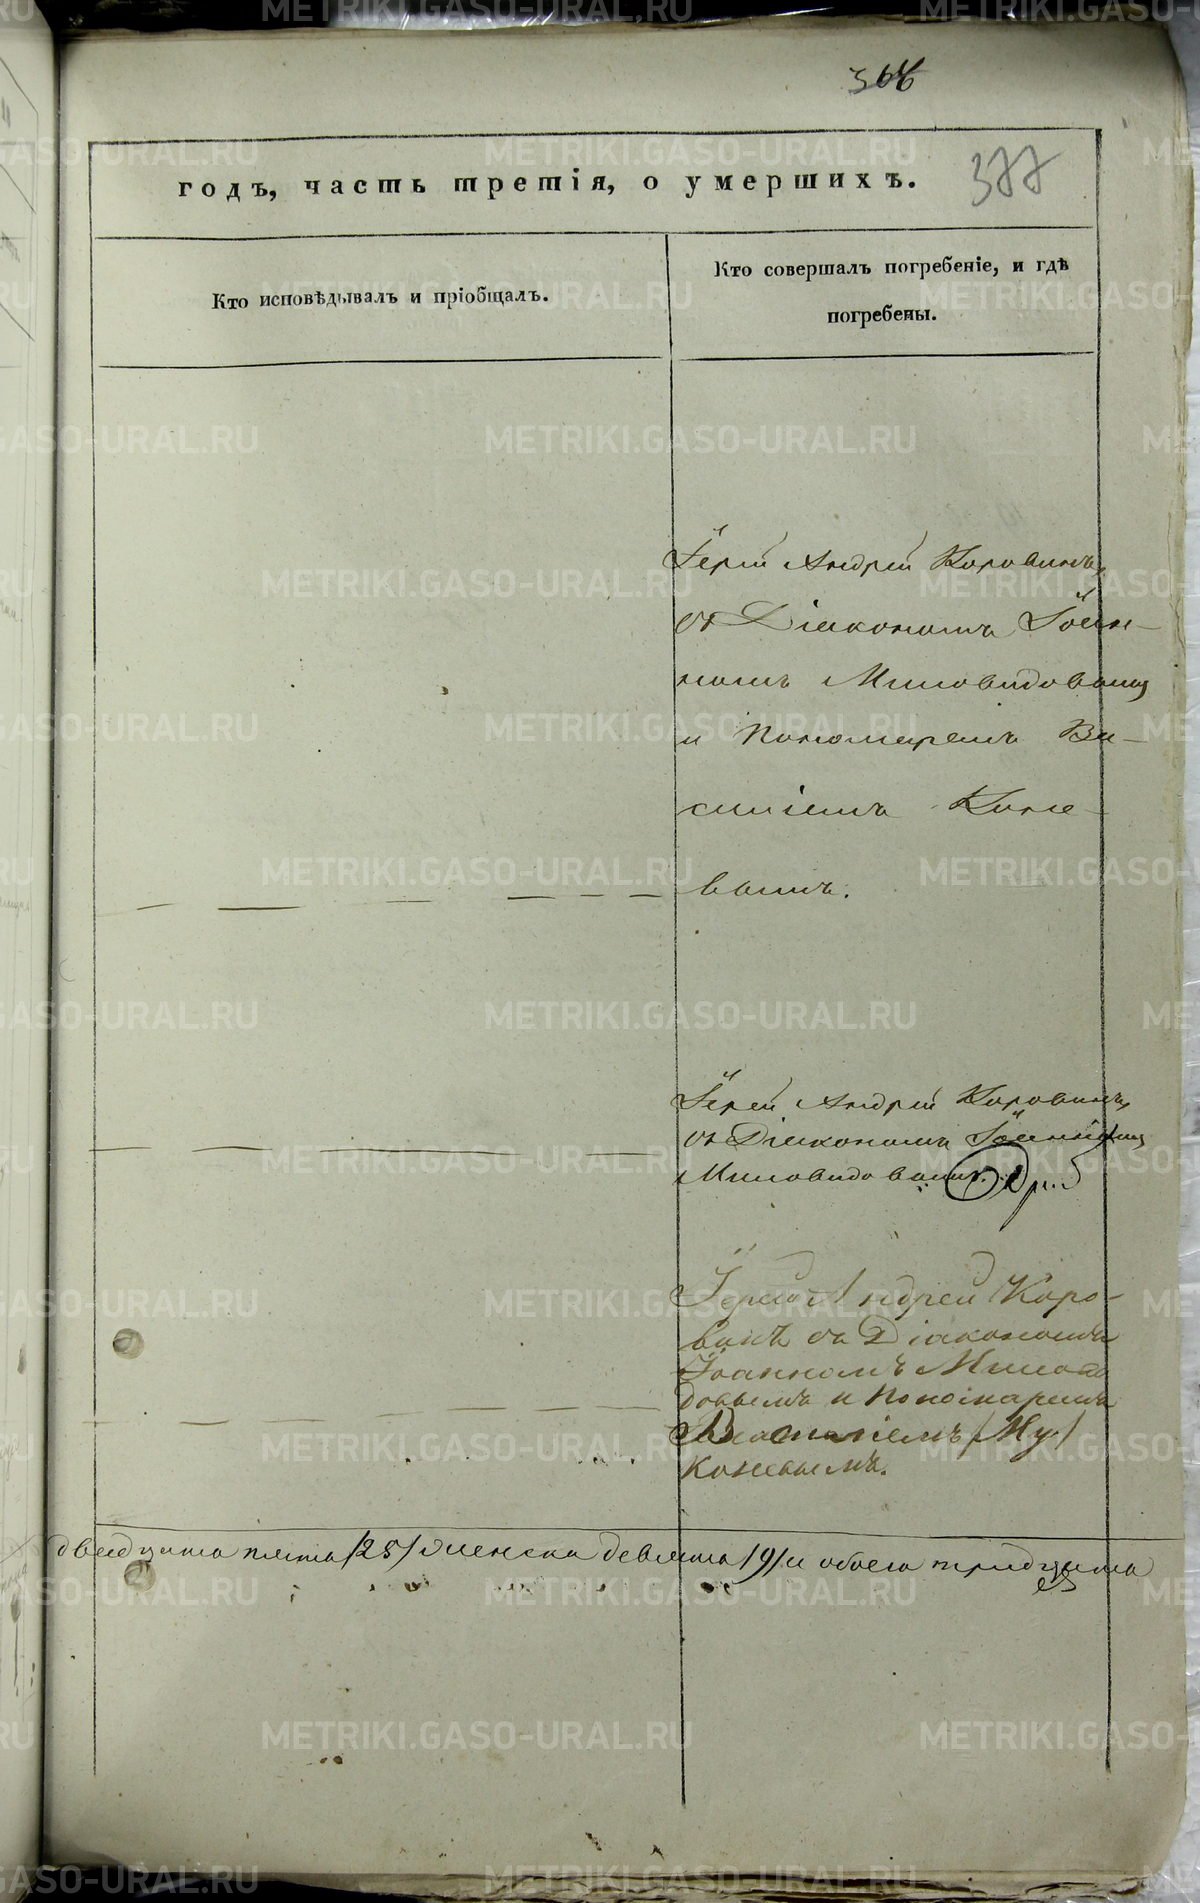 368
377
годъ, часть третія, о умершихъ.
Кто исповѣдывалъ и пріобщалъ.
Кто совершалъ погребеніе, и гдѣ
погребены.
Іерей Андрей Коровинъ,
съ Діакономъ Іоан-
номъ Миловидовымъ
и Пономаремъ Ва-
силіемъ
вымъ.
Іерей Андрей Коровинъ,
съ Діакономъ Іоанномъ
Миловидовымъ.
Іерей Андрей Коро-
винъ съ Діакономъ
Іоанномъ Милови
довымъ и Пономаремъ
двадцать пять /25/ женска девять /9/ и обоего тридцать
METRIKI.GASO-URAL.RU